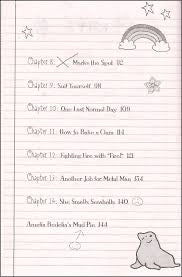 Chapter 8: X Marks the Spot 92
Chapter 9: Suit Yourself 98
Chapter 10: One Last Normal Day 109
Chapter 11: How to Bake a Clam 119
Chapter 12: Fighting Fire with "Fire!"
Chapter 13: Another Job for Metal Man 134
Chapter 14: She Smells Seashells 140
Amelia Bedelia's Mud Pie 144